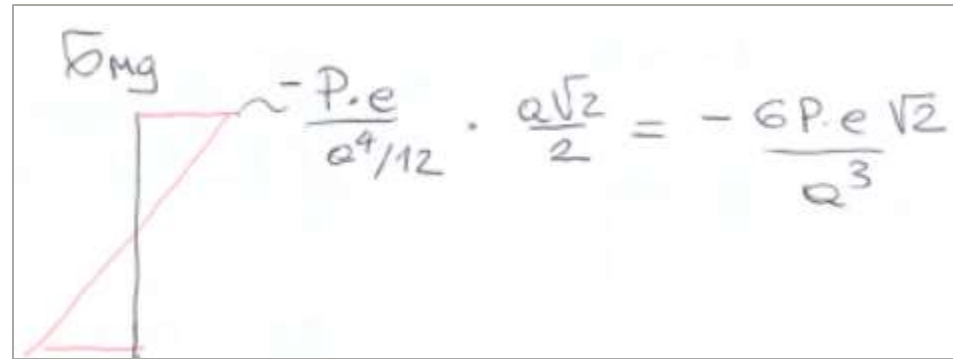 σMg
- P.e / a⁴/12 · a√2 / 2 = - 6P.e √2 / a³